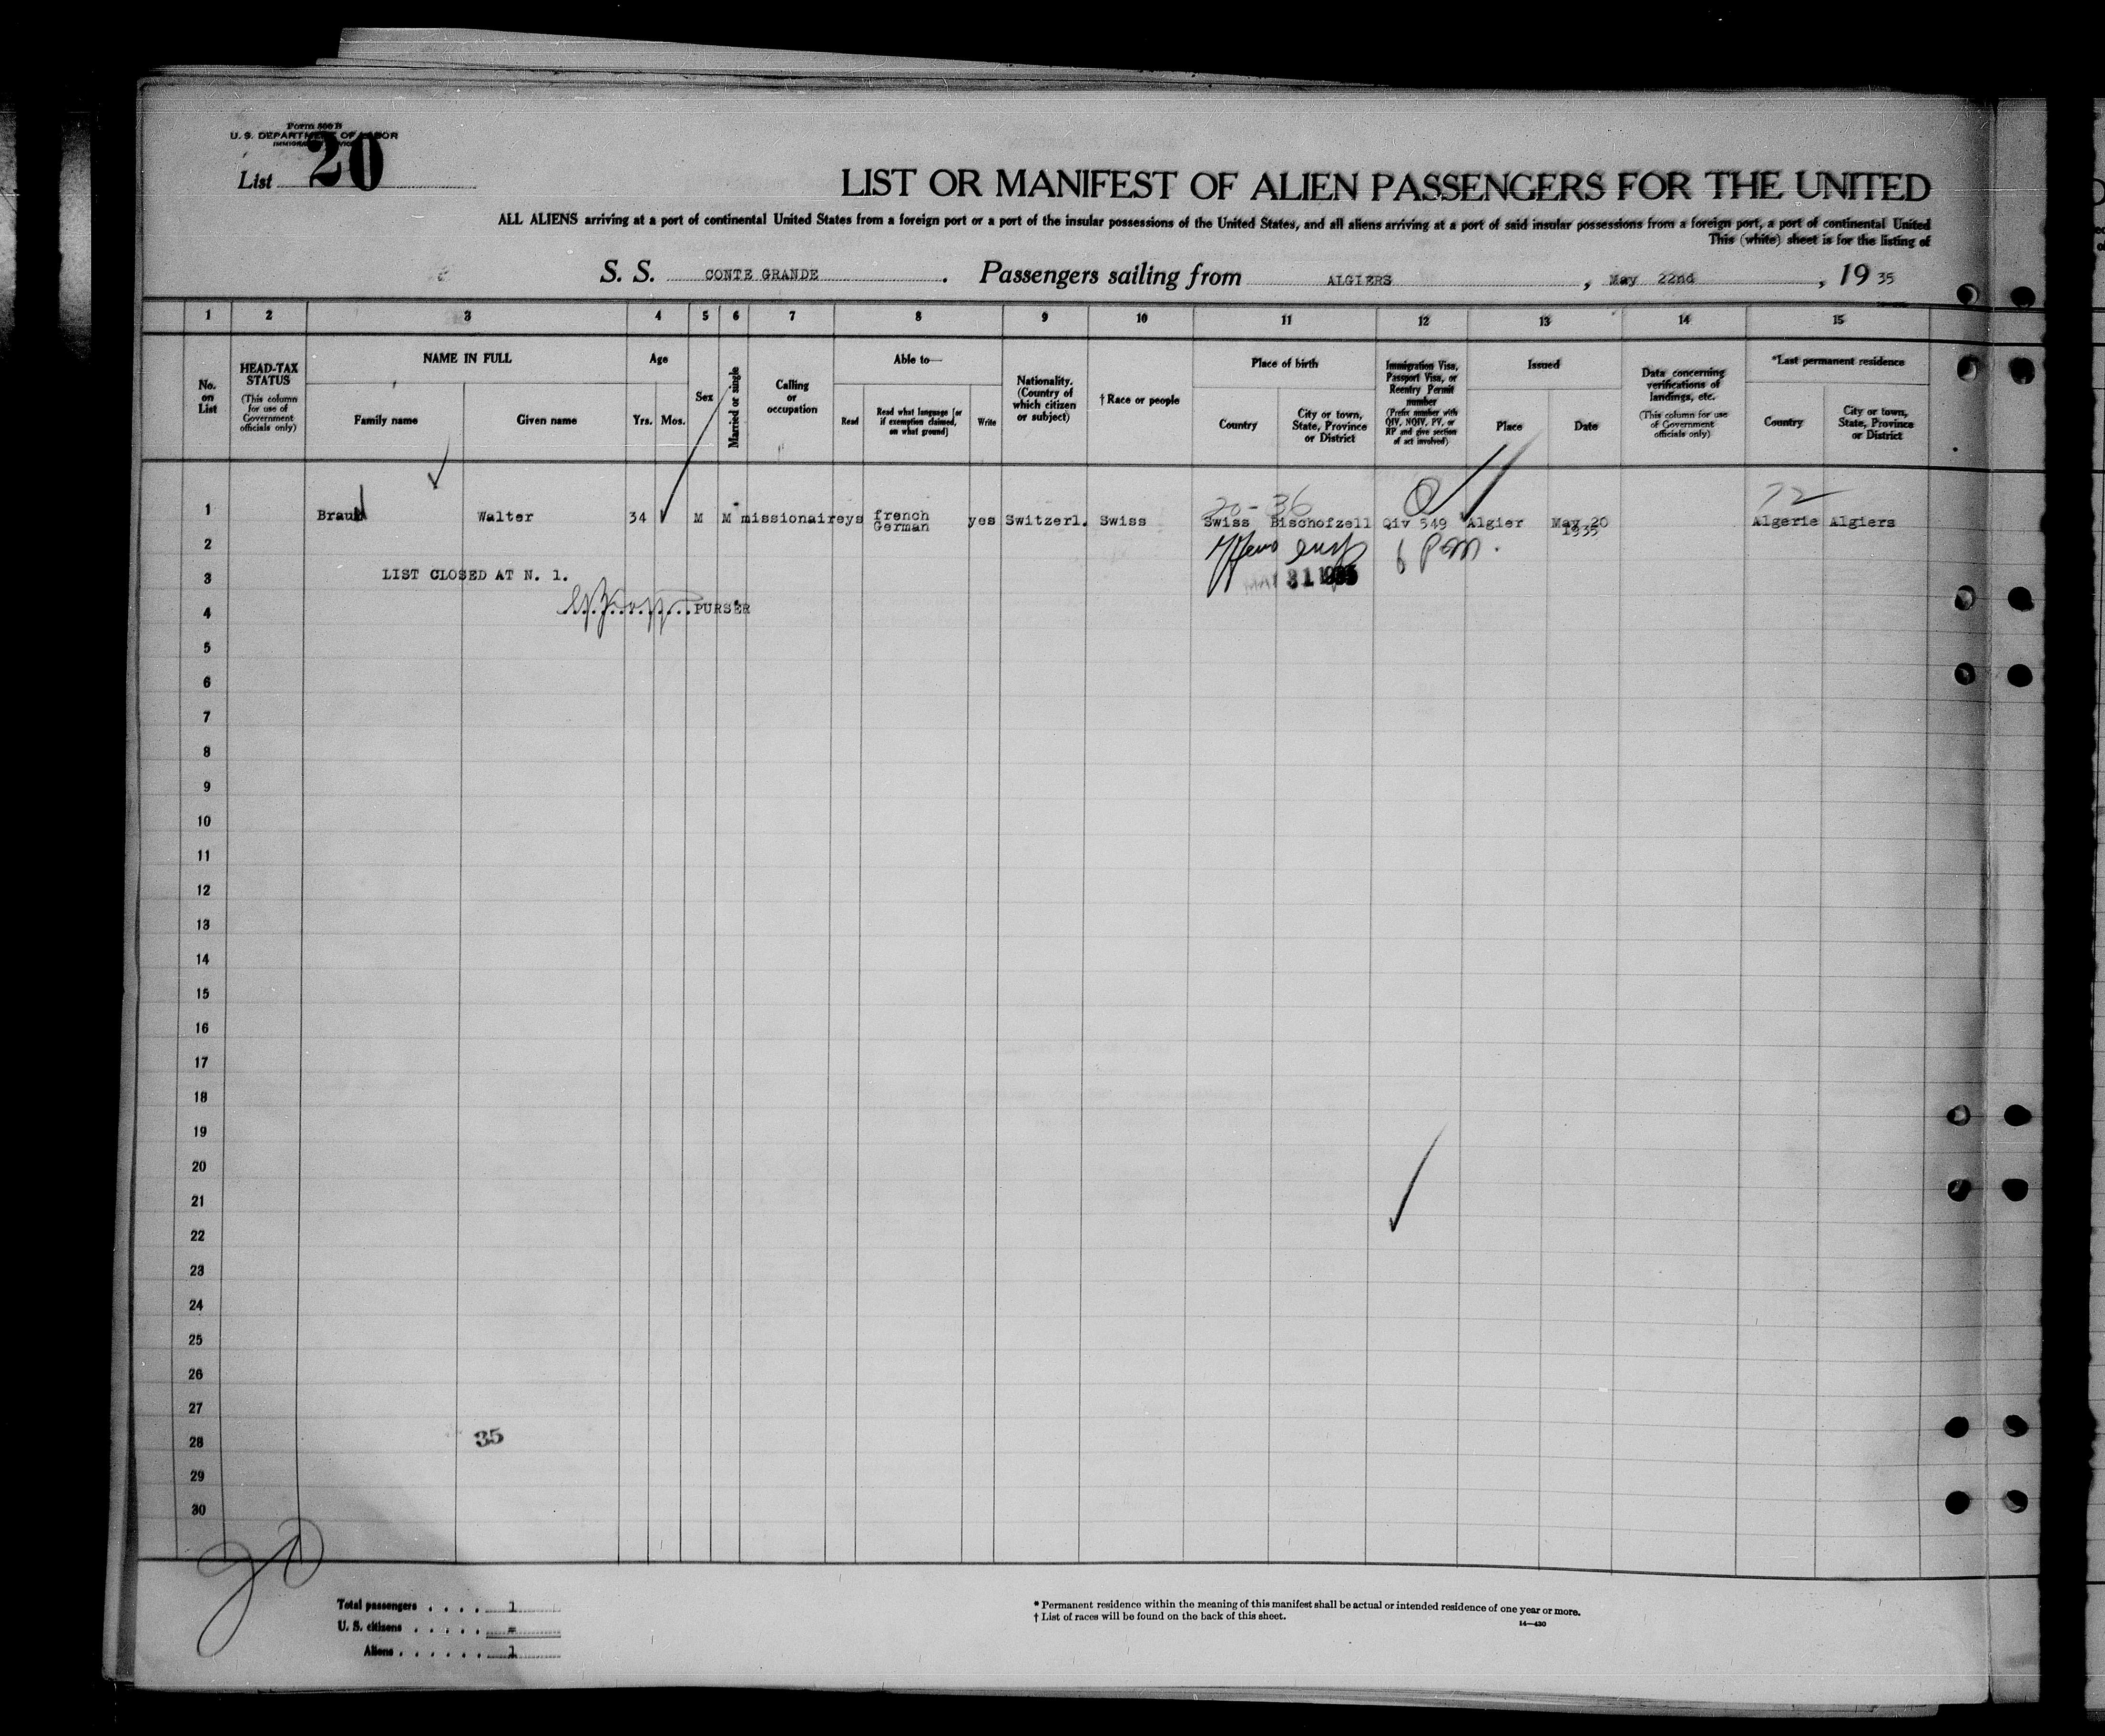 Form 500 B
U. S. DEPARTMENT OF LABOR
List 20
LIST OR MANIFEST OF ALIEN PASSENGERS FOR THE UNITED
ALL ALIENS arriving at a port of continental United States from a foreign port or a port of the insular possessions of the United States, and all aliens arriving at a port of said insular possessions from a foreign port, a port of continental United
This (white) sheet is for the listing of
S. S. CONTE GRANDE. Passengers sailing from ALGIERS, May 22nd, 19 35
1 2 3 4 5 6 7 8 9 10 11 12 13 14 15
No. on List
HEAD-TAX STATUS (This column for use of Government officials only)
NAME IN FULL
Family name
Given name
Age
Yrs.
Mos.
Sex
Married or single
Calling or occupation
Able to—
Read
Read what language [or if exemption claimed, on what ground]
Write
Nationality. (Country of which citizen or subject)
† Race or people
Place of birth
Country
City or town, State, Province or District
Immigration Visa, Passport Visa, or Reentry Permit number (Prefix number with QIV, NQIV, PV, or RP and give section of act involved)
Issued
Place
Date
Data concerning verifications of landings, etc. (This column for use of Government officials only)
*Last permanent residence
Country
City or town, State, Province or District
20-36 72
1 Braun Walter 34 M M missionaireys french German yes Switzerl. Swiss Swiss Bischofzell Qiv 549 Algier May 20 1935 Algerie Algiers
2
6 PM.
3 LIST CLOSED AT N. 1.
MAY 31 1935
4 PURSER
5
6
7
8
9
10
11
12
13
14
15
16
17
18
19
20
21
22
23
24
25
26
27
28 35
29
30
20
Total passengers . . . . 1
U. S. citizens . . . . . =
Aliens . . . . . . 1
* Permanent residence within the meaning of this manifest shall be actual or intended residence of one year or more.
† List of races will be found on the back of this sheet.
14—430